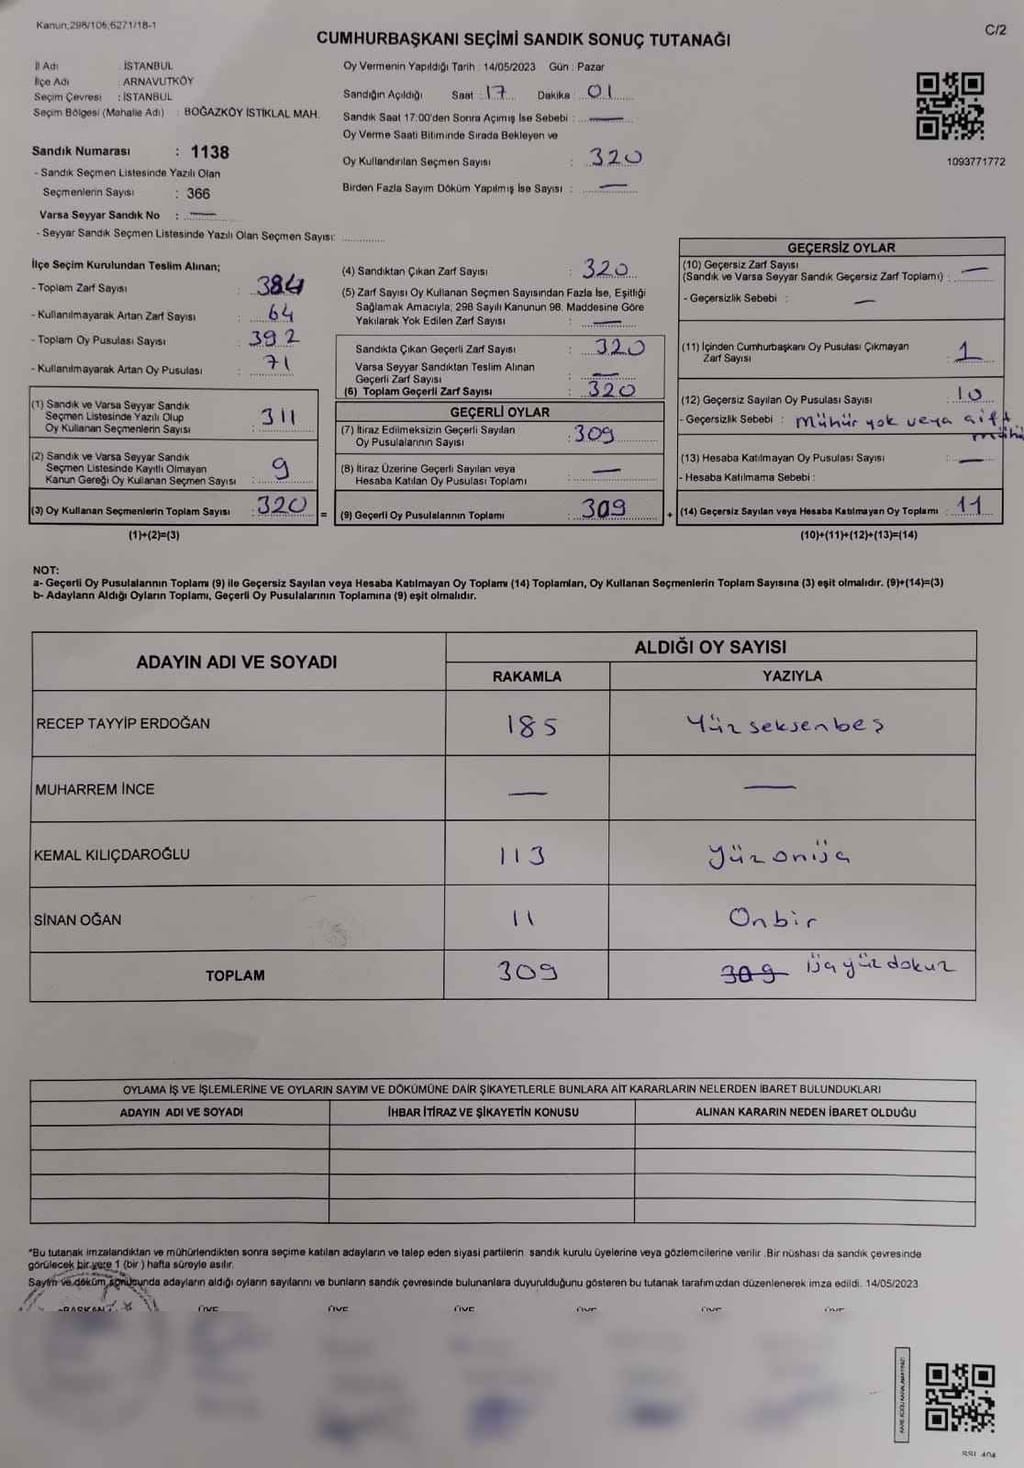 Kanun:298/106,6271/18-1
C/2
CUMHURBAŞKANI SEÇİMİ SANDIK SONUÇ TUTANAĞI
İl Adı : İSTANBUL
İlçe Adı : ARNAVUTKÖY
Seçim Çevresi : İSTANBUL
Seçim Bölgesi (Mahalle Adı) : BOĞAZKÖY İSTİKLAL MAH.
Sandık Numarası : 1138
- Sandık Seçmen Listesinde Yazılı Olan
Seçmenlerin Sayısı : 366
Varsa Seyyar Sandık No : —
- Seyyar Sandık Seçmen Listesinde Yazılı Olan Seçmen Sayısı: ............
Oy Vermenin Yapıldığı Tarih : 14/05/2023 Gün : Pazar
Sandığın Açıldığı Saat 17 Dakika 01
Sandık Saat 17:00'den Sonra Açımış İse Sebebi : —
Oy Verme Saati Bitiminde Sırada Bekleyen ve
Oy Kullandırılan Seçmen Sayısı : 320
Birden Fazla Sayım Döküm Yapılmış İse Sayısı : —
1093771772
İlçe Seçim Kurulundan Teslim Alınan;
- Toplam Zarf Sayısı : 384
- Kullanılmayarak Artan Zarf Sayısı : 64
- Toplam Oy Pusulası Sayısı : 392
- Kullanılmayarak Artan Oy Pusulası : 71
(1) Sandık ve Varsa Seyyar Sandık
Seçmen Listesinde Yazılı Olup
Oy Kullanan Seçmenlerin Sayısı : 311
(2) Sandık ve Varsa Seyyar Sandık
Seçmen Listesinde Kayıtlı Olmayan
Kanun Gereği Oy Kullanan Seçmen Sayısı : 9
(3) Oy Kullanan Seçmenlerin Toplam Sayısı : 320 =
(1)+(2)=(3)
(4) Sandıktan Çıkan Zarf Sayısı : 320
(5) Zarf Sayısı Oy Kullanan Seçmen Sayısından Fazla İse, Eşitliği
Sağlamak Amacıyla, 298 Sayılı Kanunun 98. Maddesine Göre
Yakılarak Yok Edilen Zarf Sayısı : —
Sandıkta Çıkan Geçerli Zarf Sayısı : 320
Varsa Seyyar Sandıktan Teslim Alınan
Geçerli Zarf Sayısı : —
(6) Toplam Geçerli Zarf Sayısı : 320
GEÇERLİ OYLAR
(7) İtiraz Edilmeksizin Geçerli Sayılan
Oy Pusulalarının Sayısı : 309
(8) İtiraz Üzerine Geçerli Sayılan veya
Hesaba Katılan Oy Pusulası Toplamı : —
(9) Geçerli Oy Pusulalarının Toplamı : 309 +
GEÇERSİZ OYLAR
(10) Geçersiz Zarf Sayısı
(Sandık ve Varsa Seyyar Sandık Geçersiz Zarf Toplamı) : —
- Geçersizlik Sebebi : —
(11) İçinden Cumhurbaşkanı Oy Pusulası Çıkmayan
Zarf Sayısı : 1
(12) Geçersiz Sayılan Oy Pusulası Sayısı : 10
- Geçersizlik Sebebi : Mühür yok veya çift
mühür
(13) Hesaba Katılmayan Oy Pusulası Sayısı : —
- Hesaba Katılmama Sebebi :
(14) Geçersiz Sayılan veya Hesaba Katılmayan Oy Toplamı : 11
(10)+(11)+(12)+(13)=(14)
NOT:
a- Geçerli Oy Pusulalarının Toplamı (9) ile Geçersiz Sayılan veya Hesaba Katılmayan Oy Toplamı (14) Toplamları, Oy Kullanan Seçmenlerin Toplam Sayısına (3) eşit olmalıdır. (9)+(14)=(3)
b- Adayların Aldığı Oyların Toplamı, Geçerli Oy Pusulalarının Toplamına (9) eşit olmalıdır.
ADAYIN ADI VE SOYADI
ALDIĞI OY SAYISI
RAKAMLA
YAZIYLA
RECEP TAYYİP ERDOĞAN 185 Yüzseksenbeş
MUHARREM İNCE — —
KEMAL KILIÇDAROĞLU 113 Yüzonüç
SİNAN OĞAN 11 Onbir
TOPLAM 309 309 üçyüzdokuz
OYLAMA İŞ VE İŞLEMLERİNE VE OYLARIN SAYIM VE DÖKÜMÜNE DAİR ŞİKAYETLERLE BUNLARA AİT KARARLARIN NELERDEN İBARET BULUNDUKLARI
ADAYIN ADI VE SOYADI
İHBAR İTİRAZ VE ŞİKAYETİN KONUSU
ALINAN KARARIN NEDEN İBARET OLDUĞU
*Bu tutanak imzalandıktan ve mühürlendikten sonra seçime katılan adayların ve talep eden siyasi partilerin sandık kurulu üyelerine veya gözlemcilerine verilir .Bir nüshası da sandık çevresinde
görülecek bir yere 1 (bir ) hafta süreyle asılır.
Sayım ve döküm sonucunda adayların aldığı oyların sayılarını ve bunların sandık çevresinde bulunanlara duyurulduğunu gösteren bu tutanak tarafımızdan düzenlenerek imza edildi. 14/05/2023
BAŞKAN ÜYE ÜYE ÜYE ÜYE ÜYE ÜYE